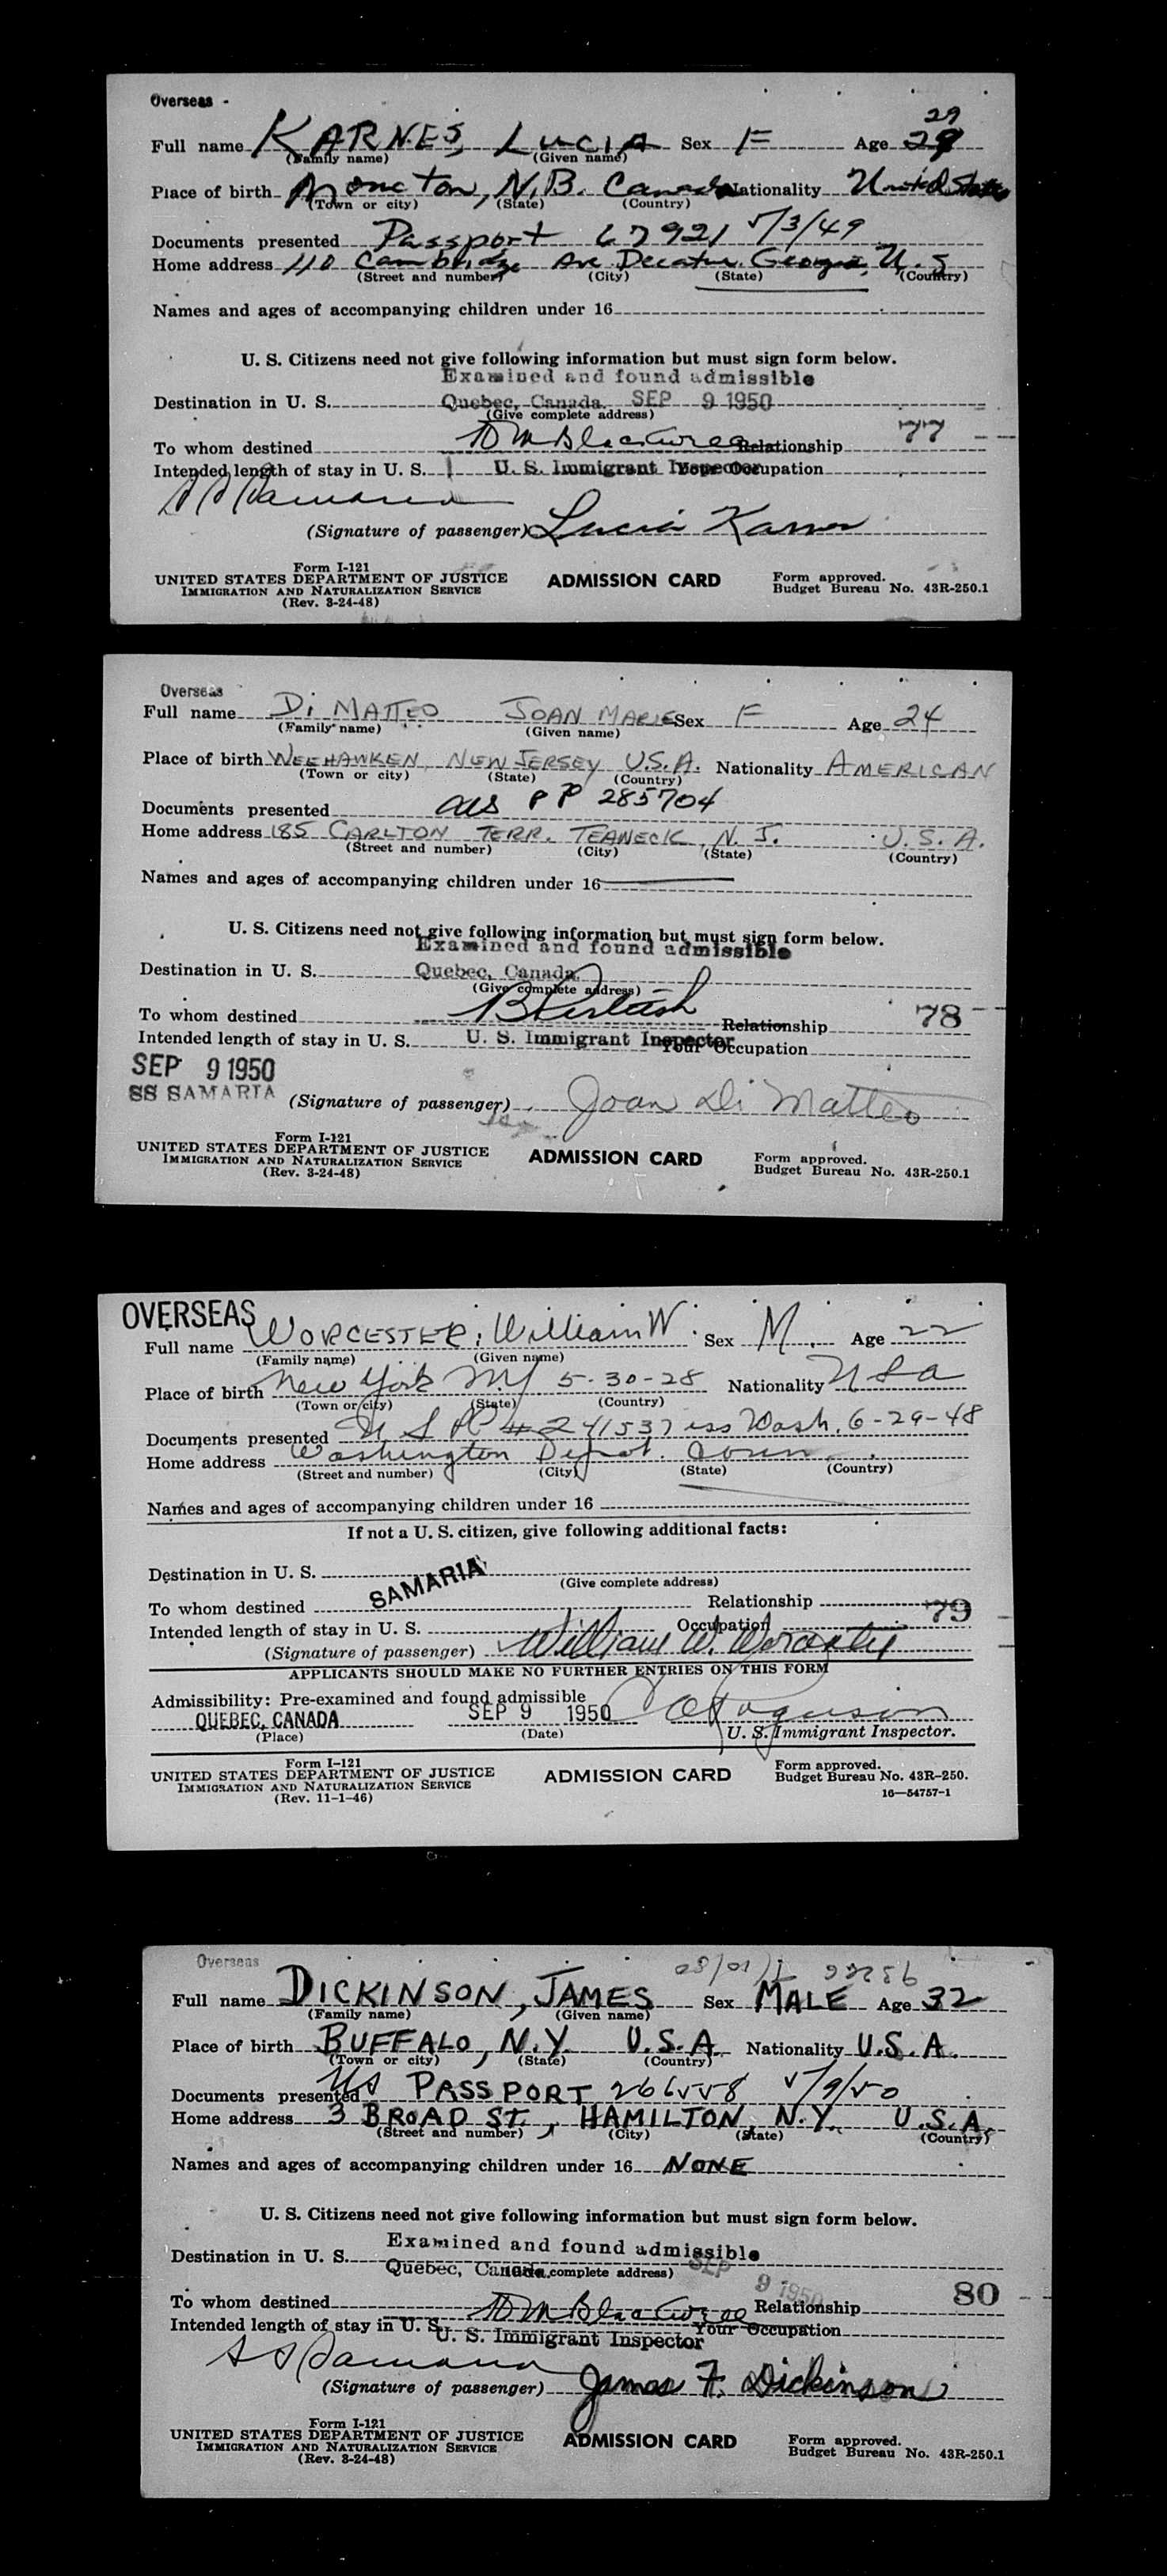 Overseas -
29
Full name KARNES, LUCIA Sex F Age 29
(Family name) (Given name)
Place of birth Moncton, N.B. Canada Nationality United States
(Town or city) (State) (Country)
Documents presented Passport 67921 5/3/49
Home address 110 Cambridge Ave Decatur Georgia, U.S
(Street and number) (City) (State) (Country)
Names and ages of accompanying children under 16
U. S. Citizens need not give following information but must sign form below.
Examined and found admissible
Destination in U. S. Quebec, Canada. SEP 9 1950
(Give complete address)
To whom destined Relationship 77
Intended length of stay in U. S. U. S. Immigrant Inspector Your Occupation
SS Samaria
(Signature of passenger) Lucia Karnes
Form I-121
UNITED STATES DEPARTMENT OF JUSTICE ADMISSION CARD Form approved.
IMMIGRATION AND NATURALIZATION SERVICE Budget Bureau No. 43R-250.1
(Rev. 3-24-48)
Overseas
Full name Di MATTEO JOAN MARIE Sex F Age 24
(Family name) (Given name)
Place of birth WEEHAWKEN, NEW JERSEY U.S.A. Nationality AMERICAN
(Town or city) (State) (Country)
Documents presented US PP 285704
Home address 185 CARLTON TERR. TEANECK, N.J. U.S.A.
(Street and number) (City) (State) (Country)
Names and ages of accompanying children under 16
U. S. Citizens need not give following information but must sign form below.
Examined and found admissible
Destination in U. S. Quebec, Canada.
(Give complete address)
To whom destined Relationship 78
Intended length of stay in U. S. U. S. Immigrant Inspector Your Occupation
SEP 9 1950
SS SAMARIA
(Signature of passenger) Joan Di Matteo
Form I-121
UNITED STATES DEPARTMENT OF JUSTICE ADMISSION CARD Form approved.
IMMIGRATION AND NATURALIZATION SERVICE Budget Bureau No. 43R-250.1
(Rev. 3-24-48)
OVERSEAS
Full name WORCESTER, William W. Sex M. Age 22
(Family name) (Given name)
Place of birth New York N.Y 5-30-28 Nationality USA
(Town or city) (State) (Country)
Documents presented U S PP #241537 iss Wash. 6-29-48
Home address Washington Depot. Conn.
(Street and number) (City) (State) (Country)
Names and ages of accompanying children under 16
If not a U. S. citizen, give following additional facts:
Destination in U. S.
SAMARIA (Give complete address)
To whom destined Relationship 79
Intended length of stay in U. S. Occupation
(Signature of passenger) William W. Worcester
APPLICANTS SHOULD MAKE NO FURTHER ENTRIES ON THIS FORM
Admissibility: Pre-examined and found admissible
QUEBEC, CANADA SEP 9 1950
(Place) (Date) U. S. Immigrant Inspector.
Form I-121
UNITED STATES DEPARTMENT OF JUSTICE ADMISSION CARD Form approved.
IMMIGRATION AND NATURALIZATION SERVICE Budget Bureau No. 43R-250.
(Rev. 11-1-46) 16—54757-1
Overseas
Full name DICKINSON, JAMES Sex MALE Age 32
(Family name) (Given name)
Place of birth BUFFALO, N.Y. U.S.A. Nationality U.S.A.
(Town or city) (State) (Country)
Documents presented US PASSPORT 266558 5/9/50
Home address 3 BROAD ST., HAMILTON, N.Y. U.S.A.
(Street and number) (City) (State) (Country)
Names and ages of accompanying children under 16 NONE
U. S. Citizens need not give following information but must sign form below.
Examined and found admissible
Destination in U. S. Quebec, Canada. SEP 9 1950
complete address)
To whom destined Relationship 80
Intended length of stay in U. S. U. S. Immigrant Inspector Your Occupation
SS Samaria
(Signature of passenger) James F. Dickinson
Form I-121
UNITED STATES DEPARTMENT OF JUSTICE ADMISSION CARD Form approved.
IMMIGRATION AND NATURALIZATION SERVICE Budget Bureau No. 43R-250.1
(Rev. 3-24-48)